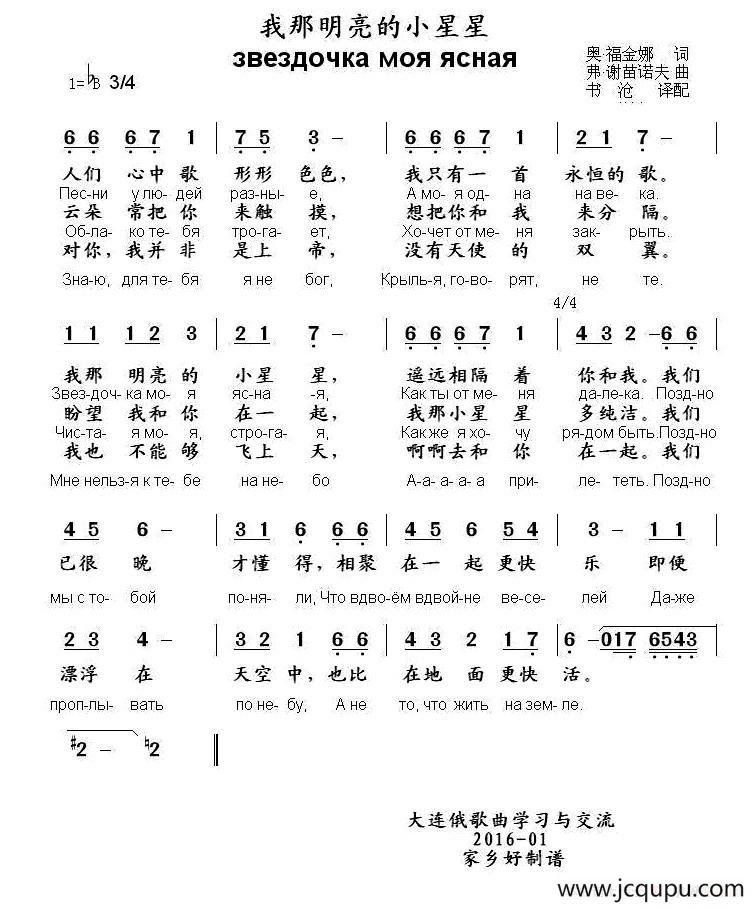 我那明亮的小星星
звездочка моя ясная
奥·福金娜 词
弗·谢苗诺夫 曲
书 沧 译配
1=♭B 3/4
6 6 6 7 1 | 7 5 3 – | 6 6 6 7 1 | 2 1 7 – |
人们 心中 歌 形形 色色， 我只有一 首 永恒的 歌。
Пес-ни у лю-дей раз-ны- е, А мо- я од- на на ве- ка.
云朵 常把 你 来触 摸， 想把你和 我 来分 隔。
Об-ла- ко те-бя тро-га- ет, Хо-чет от ме- ня зак- рыть.
对你，我并 非 是上 帝， 没有天使 的 双 翼。
Зна-ю, для те-бя я не бог, Крыль-я, го-во- рят, не те.
4/4
1 1 1 2 3 | 2 1 7 – | 6 6 6 7 1 | 4 3 2 – 6 6 |
我那 明亮 的 小星 星， 遥远相隔 着 你和 我。我们
Звез-доч- ка мо- я яс-на -я, Как ты от ме- ня да-ле-ка. Позд-но
盼望 我和 你 在一 起， 我那小星 星 多纯 洁。我们
Чис-та- я мо- я, стро-га- я, Как же я хо- чу ря-дом быть.Позд-но
我也 不能 够 飞上 天， 啊啊去和 你 在一 起。我们
Мне нельз-я к те- бе на не-бо А-а- а- а- а при- ле- теть. Позд-но
4 5 6 – | 3 1 6 6 6 | 4 5 6 5 4 | 3 – 1 1 |
已很 晚 才懂 得，相聚 在一 起 更快 乐 即便
мы с то- бой по-ня- ли, Что вдво-ём вдвой-не ве-се- лей Да-же
2 3 4 – | 3 2 1 6 6 | 4 3 2 1 7 | 6 – 017 6543 |
漂浮 在 天空 中，也比 在地 面 更快 活。
проп-лы- вать по не- бу, А не то, что жить на зем- ле.
♯2 – ♮2 ‖
大连俄歌曲学习与交流
2016-01
家乡好制谱
www.jcqupu.com